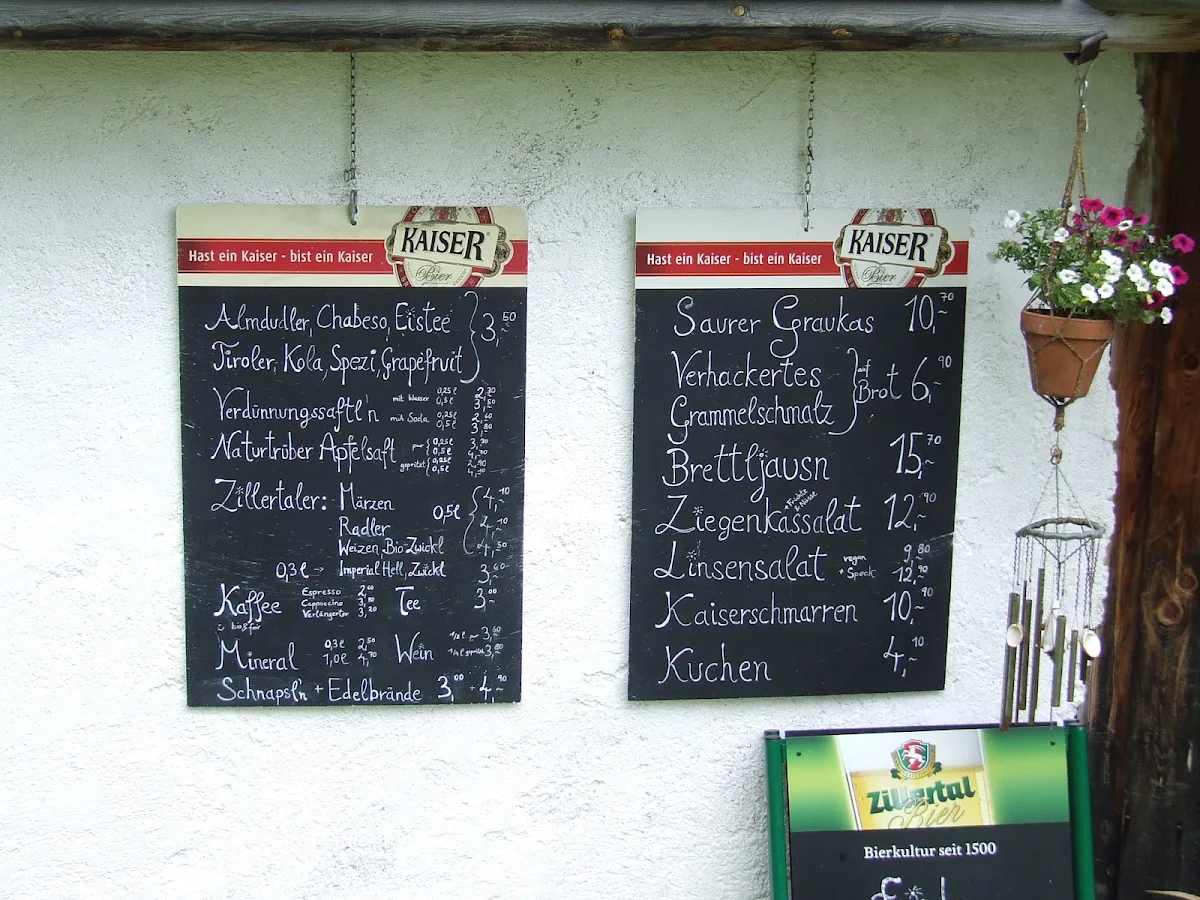 Hast ein Kaiser - bist ein Kaiser
KAISER
Bier
Almdudler, Chabeso, Eistee
Tiroler Kola, Spezi, Grapefruit
3,50
Verdünnungssaftl'n
mit Wasser 0,25l
0,5l
mit Soda 0,25l
0,5l
Naturtrüber Apfelsaft
0,25l
0,5l
gespritzt 0,25l
0,5l
Zillertaler: Märzen 4,10
Radler 0,5l
Weizen, Bio-Zwickl
0,3l → Imperial Hell, Zwickl
Kaffee Espresso
Cappuccino
Verlängerter
bio & fair
Tee 3,00
Mineral 0,3l 2,50
1,0l 4,70
Wein
Schnapsln + Edelbrände 3,00 - 4,90
Hast ein Kaiser - bist ein Kaiser
KAISER
Bier
Saurer Graukas 10,70
Verhackertes
Grammelschmalz
auf Brot 6,90
Brettljausn 15,70
Ziegenkassalat 12,90
+ Früchte & Nüsse
Linsensalat vegan 9,80
+ Speck 12,90
Kaiserschmarren 10,90
Kuchen 4,10
Zillertal
Bier
Bierkultur seit 1500